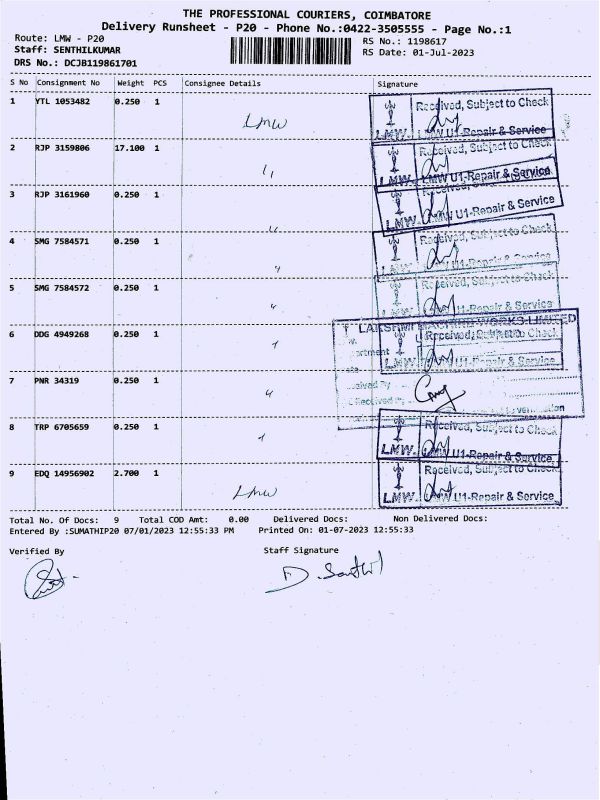 THE PROFESSIONAL COURIERS, COIMBATORE
Delivery Runsheet - P20 - Phone No.:0422-3505555 - Page No.:1
Route: LMW - P20
RS No.: 1198617
Staff: SENTHILKUMAR
RS Date: 01-Jul-2023
DRS No.: DCJB119861701
S No Consignment No Weight PCS Consignee Details Signature
1 YTL 1053482 0.250 1 LMW
Received, Subject to Check
LMW. LMW U1-Repair & Service
2 RJP 3159806 17.100 1 "
Received, Subject to Check
LMW. LMW U1-Repair & Service
3 RJP 3161960 0.250 1 "
Received, Subject to Check
LMW. LMW U1-Repair & Service
4 SMG 7584571 0.250 1 "
Received, Subject to Check
LMW. LMW U1-Repair & Service
5 SMG 7584572 0.250 1 "
Received, Subject to Check
LMW. LMW U1-Repair & Service
LAKSHMI MACHINE WORKS LIMITED
6 DDG 4949268 0.250 1 "
Received, Subject to Check
U1-Repair & Service
7 PNR 34319 0.250 1 "
8 TRP 6705659 0.250 1 "
Received, Subject to Check
LMW. U1-Repair & Service
9 EDQ 14956902 2.700 1 LMW
Received, Subject to Check
LMW. LMW U1-Repair & Service
Total No. Of Docs: 9 Total COD Amt: 0.00 Delivered Docs: Non Delivered Docs:
Entered By :SUMATHIP20 07/01/2023 12:55:33 PM Printed On: 01-07-2023 12:55:33
Verified By Staff Signature
D. Senthil